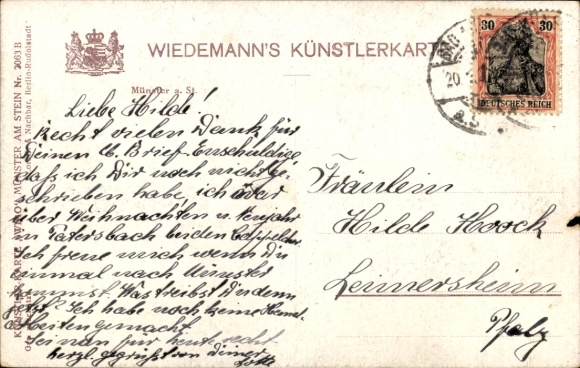 WIEDEMANN'S KÜNSTLERKART
Münster a. St.
30 30
DEUTSCHES REICH
20
KÜNSTLER-KARTE MÜNSTER AM STEIN Nr. 2063 B
Nachbar, Berlin-Rudolstadt
Liebe Hilde!
Recht vielen Dank für
Deinen l. Brief. Entschuldige,
daß ich Dir noch nicht ge-
schrieben habe, ich war
über Weihnachten u. Neujahr
in Patersbach bei den
Ich freue mich wenn Du
einmal nach Münster
kommst. Was treibst Du denn
Ich habe noch keine Hand-
arbeiten gemacht.
Sei nun für heute recht
herzl. gegrüßt von Deiner
Lotte
Fräulein
Hilde Hoock
Leimersheim
Pfalz